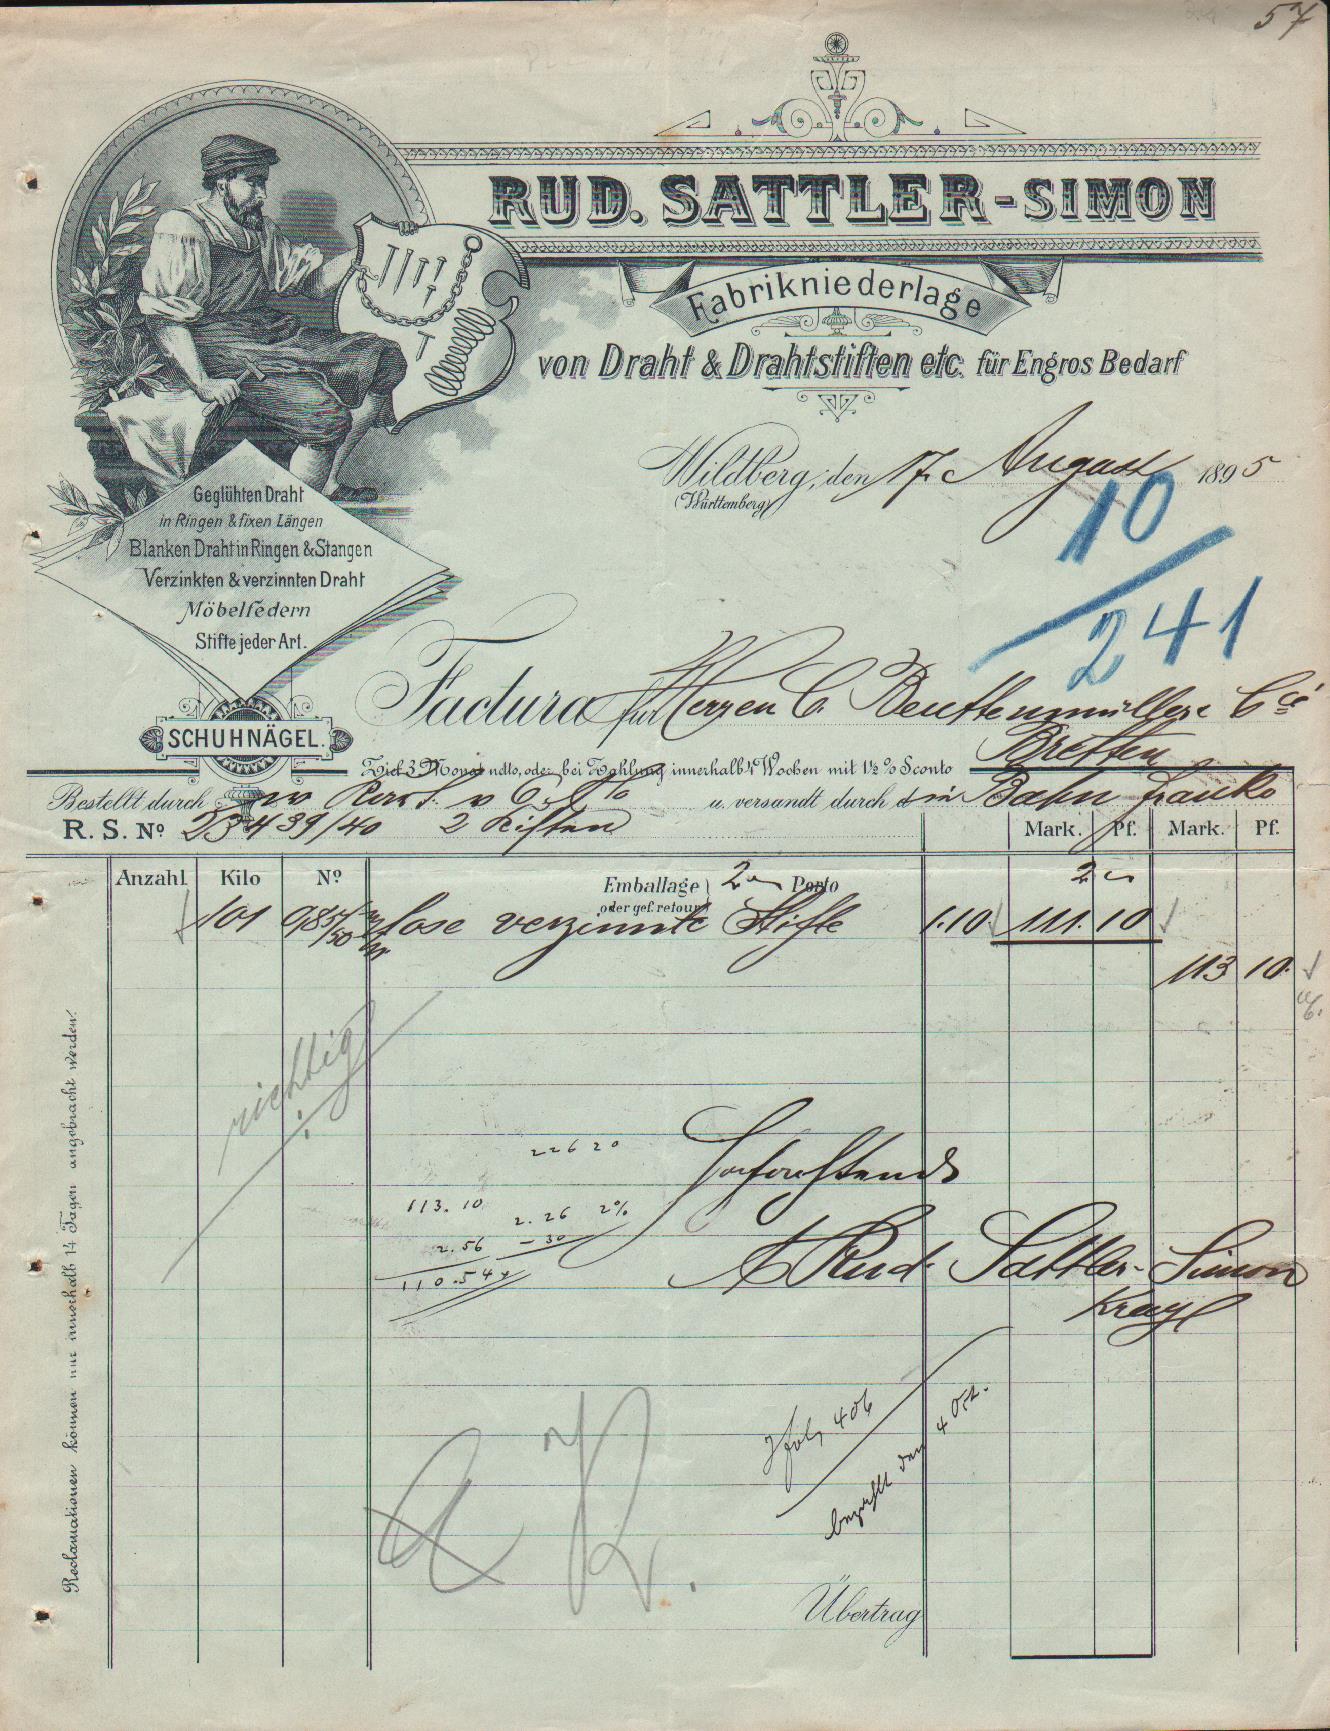 57
RUD. SATTLER-SIMON
Fabrikniederlage
von Draht & Drahtstiften etc. für Engros Bedarf
Wildberg, den 17. August 1895
(Württemberg)
10
241
Geglühten Draht
in Ringen & fixen Längen
Blanken Draht in Ringen & Stangen
Verzinkten & verzinnten Draht
Möbelfedern
Stifte jeder Art.
SCHUHNÄGEL.
Factura für Herren C. Beuttenmüller & Cie
Bretten
Ziel 3 Monat netto, oder bei Zahlung innerhalb 4 Wochen mit 1½ % Sconto
Bestellt durch u. versandt durch die Bahn franko
R. S. No 23439/40 2 Kisten
Mark. Pf. Mark. Pf.
Anzahl Kilo No Emballage 2 Porto 2
oder gef. retour
101 lose verzinnte Stifte 1.10 111. 10
113 10.
richtig
226 20
Hochachtend
113. 10
2. 26 2%
2. 56 - 30
110.54
Rud. Sattler-Simon
406
bezahlt den 4 Oct.
Übertrag
Reclamationen können nur innerhalb 14 Tagen angebracht werden.